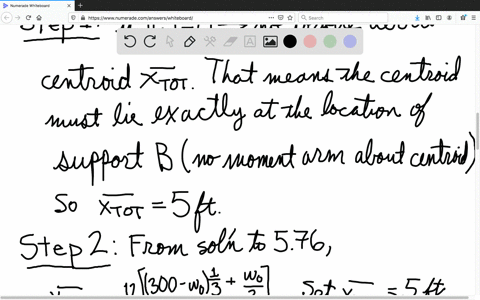 Numerade Whiteboard
https://www.numerade.com/answers/whiteboard/
Step 1:
about
centroid x̄TOT. That means the centroid
must lie exactly at the location of
support B (no moment arm about centroid)
So x̄TOT = 5 ft.
Step 2: From sol'n to 5.76,
12[(300-w₀)1/3 + w₀/2] Set x̄ = 5 ft